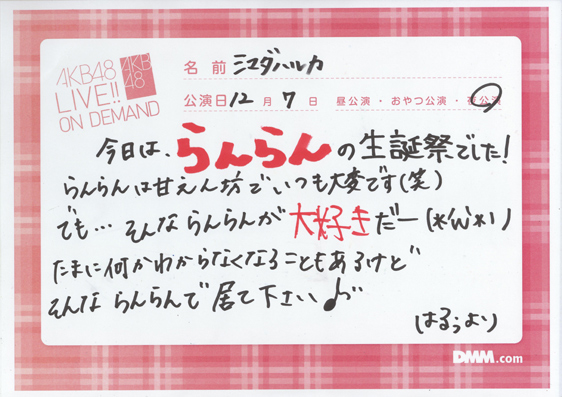 AKB48
LIVE!!
ON DEMAND
AKB
48
名前 シマダハルカ
公演日 12月 7日 昼公演・おやつ公演・夜公演
今日は、らんらんの生誕祭でした!
らんらんは甘えん坊でいつも大変です(笑)
でも… そんならんらんが大好きだー(*'ω'*)
たまに何かわからなくなることもあるけど
そんならんらんで居て下さい♪
はるぅより
DMM.com